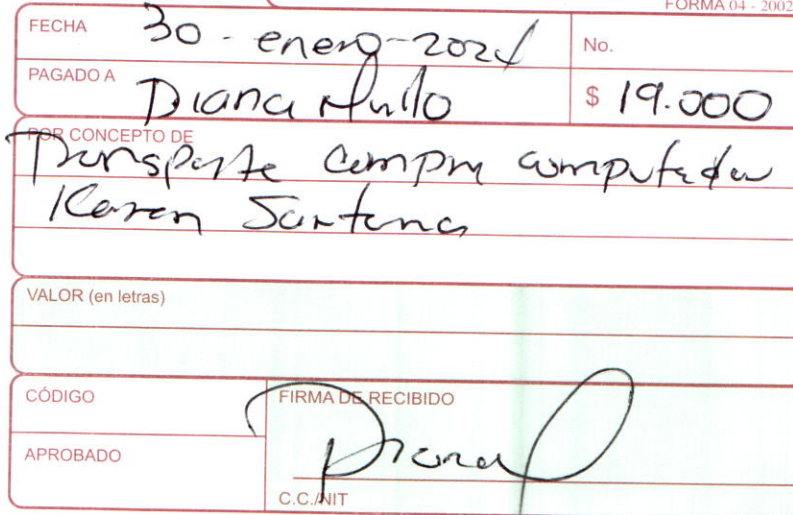 FORMA 04 - 2002
FECHA 30 - enero - 2024 No.
PAGADO A Diana $ 19.000
POR CONCEPTO DE
Transporte compra computador
Karen Santana
VALOR (en letras)
CÓDIGO FIRMA DE RECIBIDO
APROBADO Diana
C.C./NIT